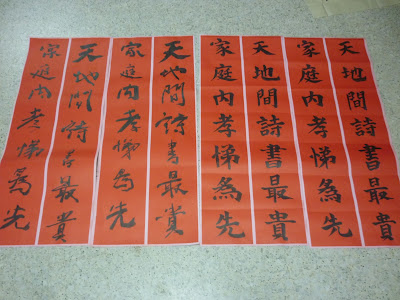 天地間詩書最貴
家庭內孝悌為先
天地間詩書最貴
家庭內孝悌為先
天地間詩書最貴
家庭內孝悌為先
天地間詩書最貴
家庭內孝悌為先